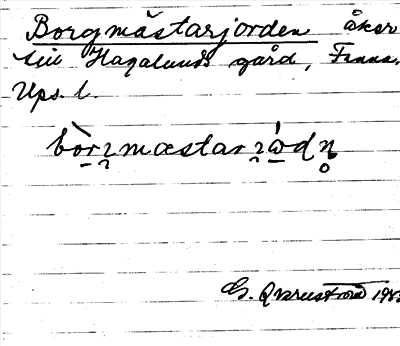 Borgmästarjorden åker
till Hagalunds gård, Funbo.
Ups. l.
bòrʒmæstarʒớdn̥
G. Qvarnström